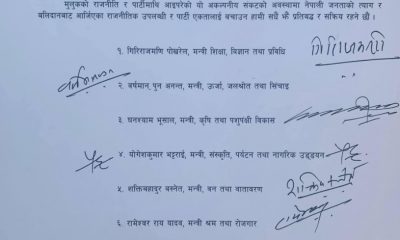 मुलुकको राजनीति र पार्टीमाथि आइपरेको यो अकल्पनीय संकटको अवस्थामा नेपाली जनताको त्याग र
बलिदानबाट आर्जिएका राजनीतिक उपलब्धी र पार्टी एकतालाई बचाउन हामी सधैं प्रतिबद्ध र सक्रिय रहने छौं ।
१. गिरिराजमणि पोखरेल, मन्त्री शिक्षा, विज्ञान तथा प्रविधि
२. वर्षमान पुन अनन्त, मन्त्री, ऊर्जा, जलश्रोत तथा सिंचाइ
३. घनश्याम भूसाल, मन्त्री, कृषि तथा पशुपंक्षी विकास
४. योगेशकुमार भट्टराई, मन्त्री, संस्कृति, पर्यटन तथा नागरिक उड्डयन
५. शक्तिबहादुर बस्नेत, मन्त्री, वन तथा वातावरण
६. रामेश्वर राय यादव, मन्त्री श्रम तथा रोजगार